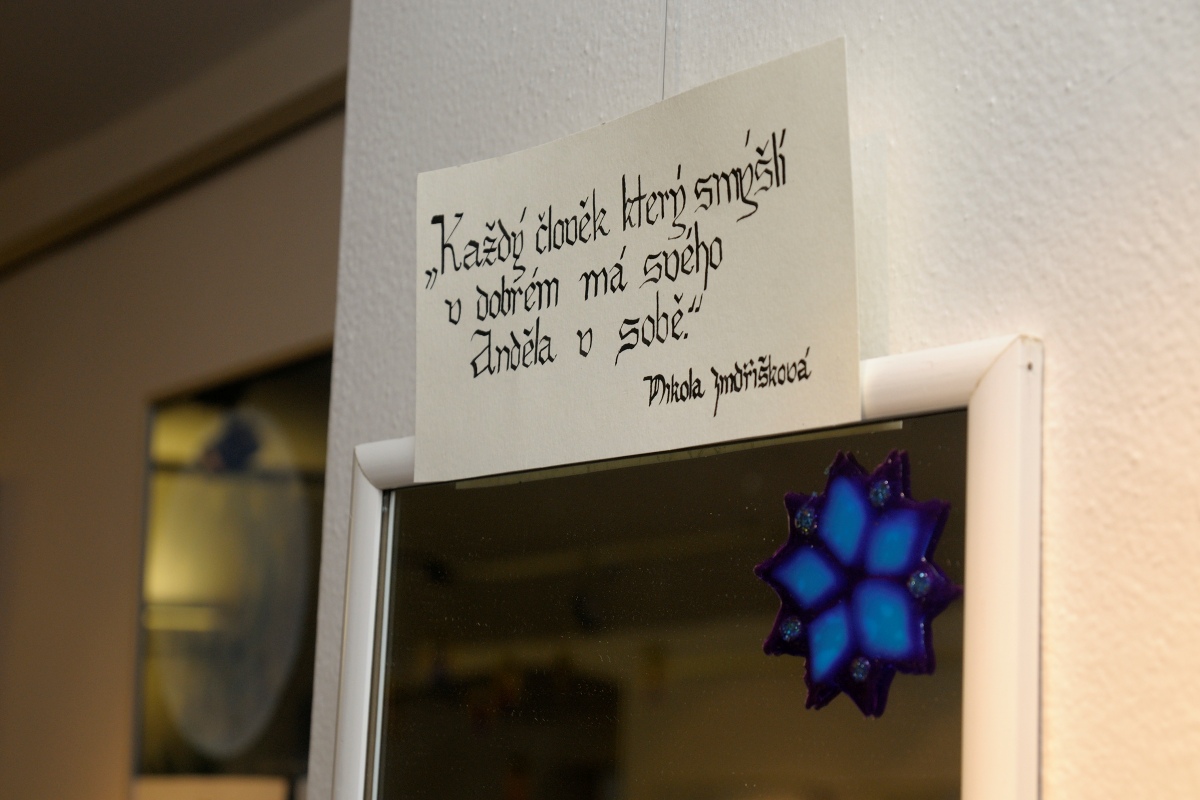 „Každý člověk který smýšlí
v dobrém má svého
Anděla v sobě.“
Nikola Jindřišková